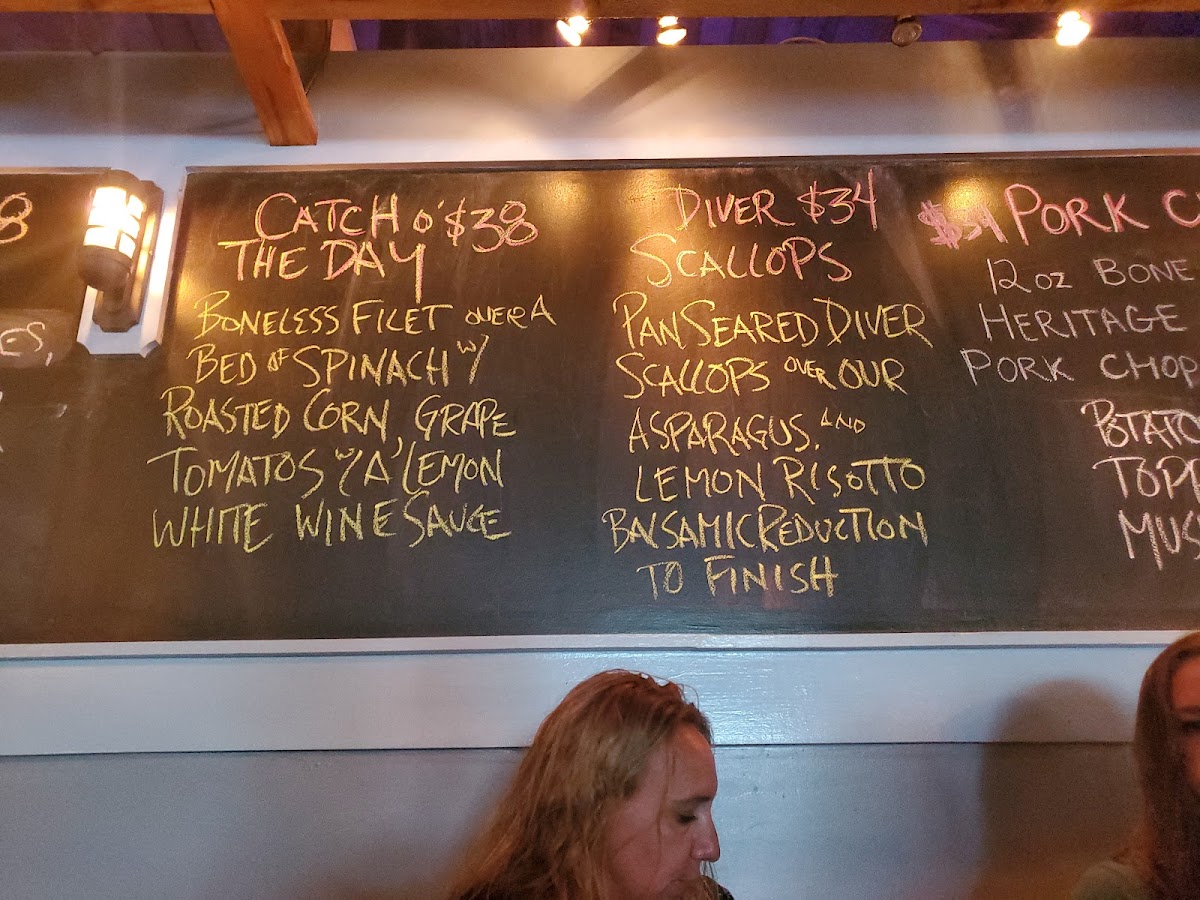 8
ES,
CATCH O' $38
THE DAY
BONELESS FILET OVER A
BED OF SPINACH W/
ROASTED CORN, GRAPE
TOMATOS W/ A LEMON
WHITE WINE SAUCE
DIVER $34
SCALLOPS
PAN SEARED DIVER
SCALLOPS OVER OUR
ASPARAGUS, AND
LEMON RISOTTO
BALSAMIC REDUCTION
TO FINISH
PORK C
12 OZ BONE
HERITAGE
PORK CHOP
POTATO
TOP
MUS